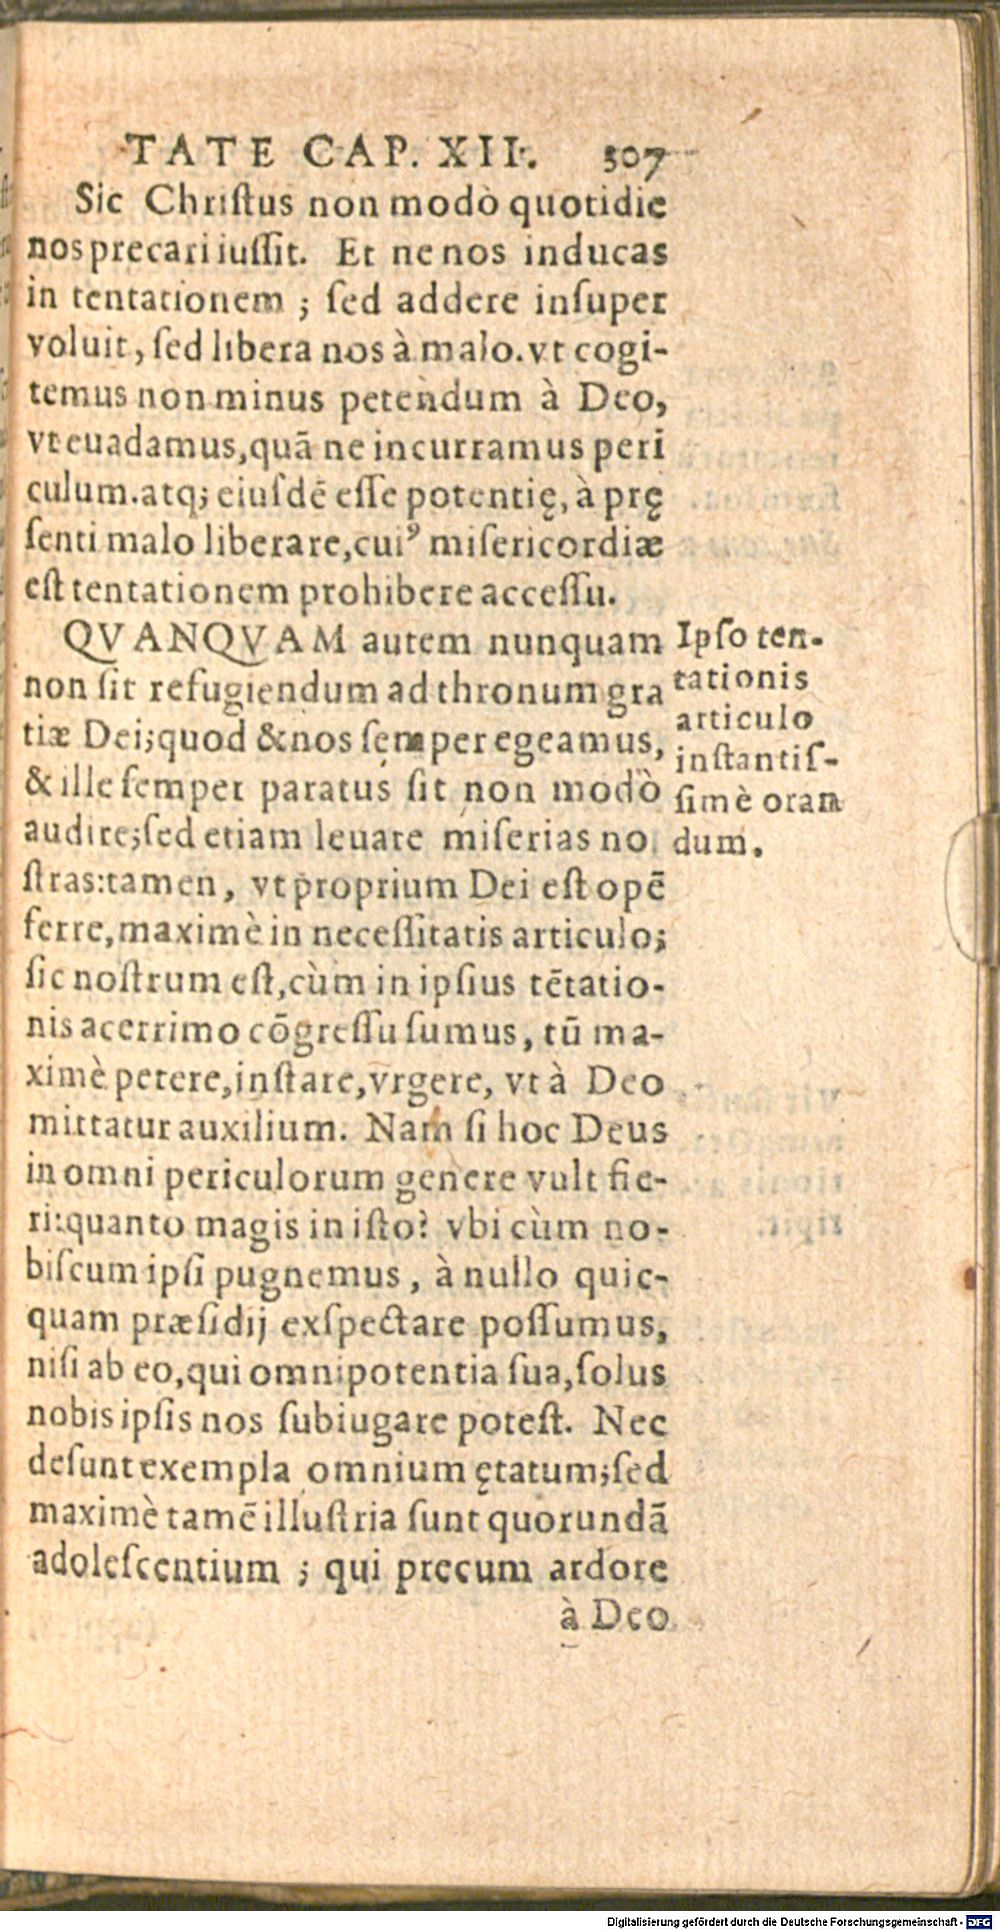 TATE CAP. XII. 507
Sic Chriſtus non modò quotidie
nos precari iuſſit. Et ne nos inducas
in tentationem ; ſed addere inſuper
voluit, ſed libera nos à malo. vt cogi-
temus non minus petendum à Deo,
vt euadamus, quã ne incurramus peri
culum. atq; eiuſdẽ eſſe potentię, à prę
ſenti malo liberare, cuiꝰ miſericordiæ
eſt tentationem prohibere acceſſu.
QVANQVAM autem nunquam
non ſit refugiendum ad thronum gra
tiæ Dei; quod & nos ſemper egeamus,
& ille ſemper paratus ſit non modò
audire; ſed etiam leuare miſerias no
ſtras: tamen, vt proprium Dei eſt opẽ
ferre, maximè in neceſſitatis articulo;
ſic noſtrum eſt, cùm in ipſius tẽtatio-
nis acerrimo cõgreſſu ſumus, tũ ma-
ximè petere, inſtare, vrgere, vt à Deo
mittatur auxilium. Nam ſi hoc Deus
in omni periculorum genere vult fie-
ri: quanto magis in iſto? vbi cùm no-
biſcum ipſi pugnemus, à nullo quic-
quam præſidij exſpectare poſſumus,
niſi ab eo, qui omnipotentia ſua, ſolus
nobis ipſis nos ſubiugare poteſt. Nec
deſunt exempla omnium ętatum; ſed
maximè tamẽ illuſtria ſunt quorundã
adoleſcentium ; qui precum ardore
à Deo
Ipſo ten-
tationis
articulo
inſtantiſ-
ſimè oran
dum.
Digitalisierung gefördert durch die Deutsche Forschungsgemeinschaft - DFG